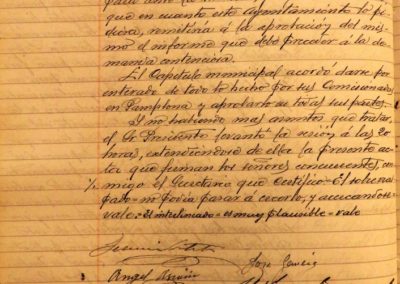 que en cuanto este Ayuntamiento lo pi-
diera, remitiria á la aprobación del mis-
mo el informe que debe preceder á la de-
manda contenciosa.
El Capitulo municipal acordó darse por
enterado de todo lo hecho por sus Comisionados
en Pamplona y aprobarlo en todas sus partes.
Y no habiendo mas asuntos que tratar,
el Sr Presidente levantó la sesión á las 20
horas, extendiéndose de ella la presente ac-
ta que firman los señores concurrentes, con-
migo el Secretario que certifico = El
pado = no podía pasar á
vale = El interlineado = es muy plausible = vale
José García
Angel